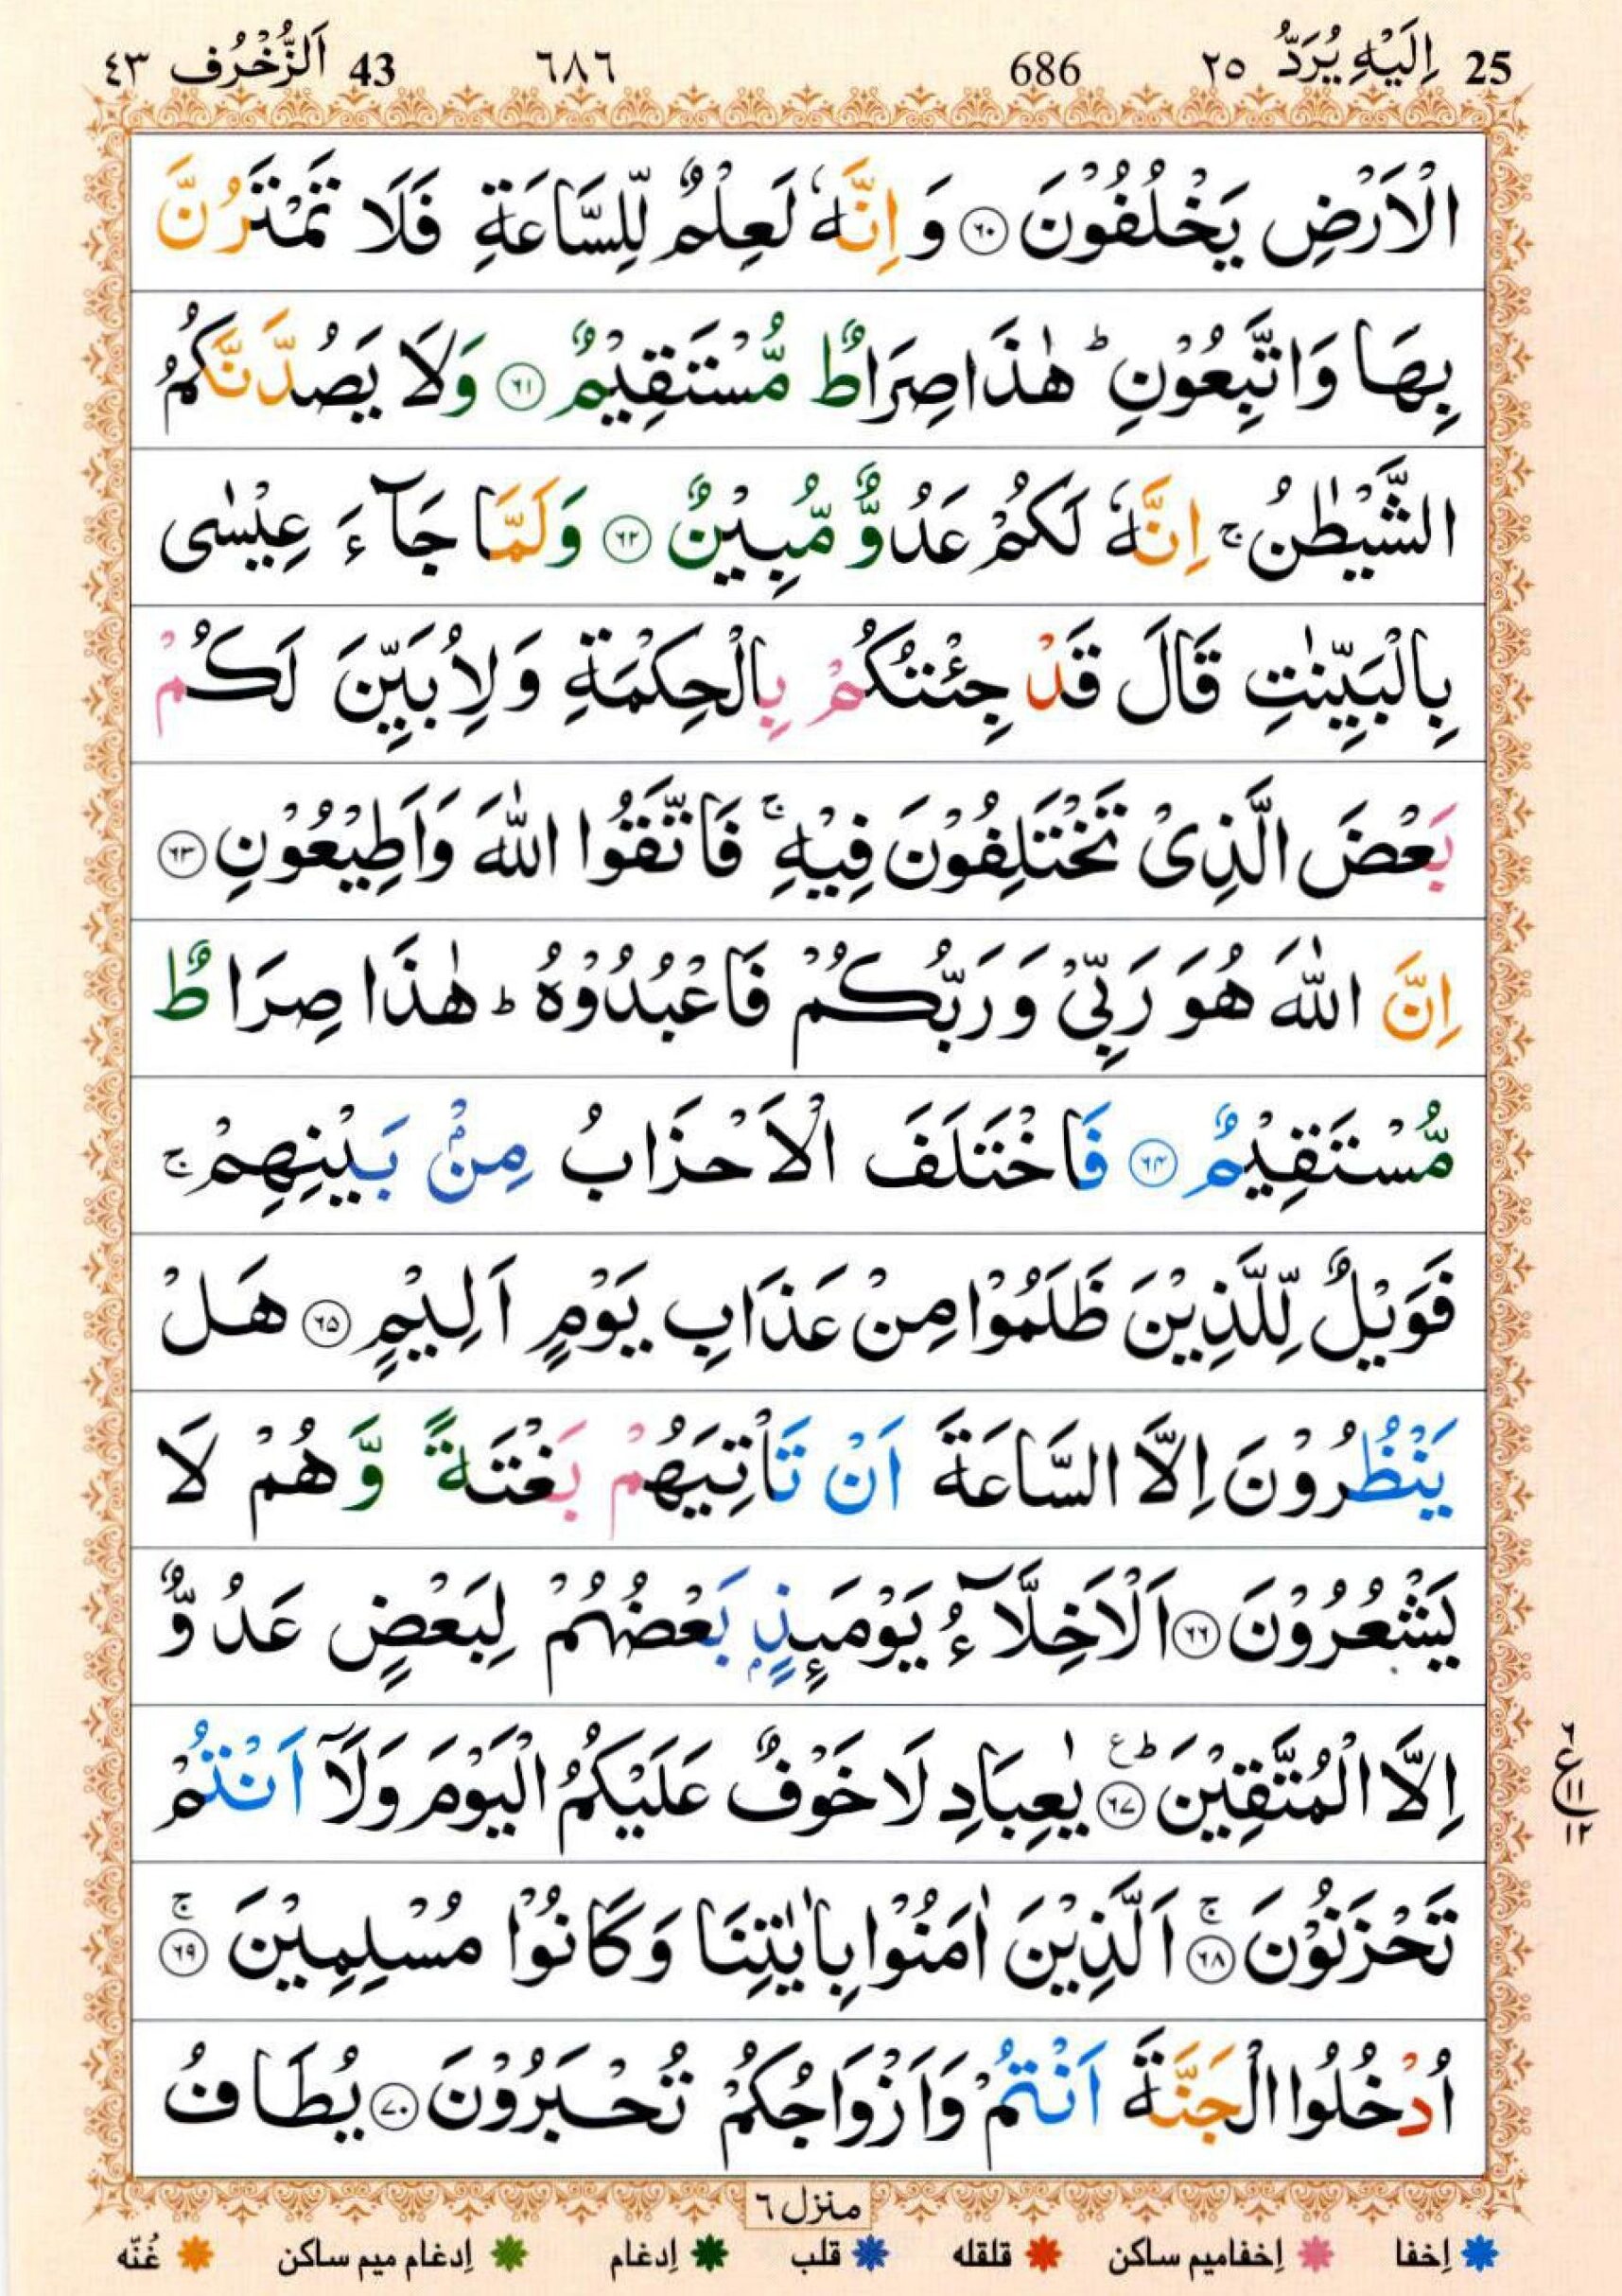 25 اِلَيْهِ يُرَدُّ ٢٥ 686 ٦٨٦ 43 اَلزُّخْرُف ٤٣
الْاَرْضِ يَخْلُفُوْنَ ﴿٦٠﴾ وَ اِنَّهٗ لَعِلْمٌ لِّلسَّاعَةِ فَلَا تَمْتَرُنَّ
بِهَا وَاتَّبِعُوْنِ ؕ هٰذَا صِرَاطٌ مُّسْتَقِيْمٌ ﴿٦١﴾ وَلَا يَصُدَّنَّكُمُ
الشَّيْطٰنُ ۚ اِنَّهٗ لَكُمْ عَدُوٌّ مُّبِيْنٌ ﴿٦٢﴾ وَلَمَّا جَآءَ عِيْسٰى
بِالْبَيِّنٰتِ قَالَ قَدْ جِئْتُكُمْ بِالْحِكْمَةِ وَلِاُبَيِّنَ لَكُمْ
بَعْضَ الَّذِىْ تَخْتَلِفُوْنَ فِيْهِ ۚ فَاتَّقُوا اللّٰهَ وَاَطِيْعُوْنِ ﴿٦٣﴾
اِنَّ اللّٰهَ هُوَ رَبِّىْ وَرَبُّكُمْ فَاعْبُدُوْهُ ؕ هٰذَا صِرَاطٌ
مُّسْتَقِيْمٌ ﴿٦٤﴾ فَاخْتَلَفَ الْاَحْزَابُ مِنْۢ بَيْنِهِمْ ۚ
فَوَيْلٌ لِّلَّذِيْنَ ظَلَمُوْا مِنْ عَذَابِ يَوْمٍ اَلِيْمٍ ﴿٦٥﴾ هَلْ
يَنْظُرُوْنَ اِلَّا السَّاعَةَ اَنْ تَاْتِيَهُمْ بَغْتَةً وَّهُمْ لَا
يَشْعُرُوْنَ ﴿٦٦﴾ اَلْاَخِلَّآءُ يَوْمَئِذٍۭ بَعْضُهُمْ لِبَعْضٍ عَدُوٌّ
اِلَّا الْمُتَّقِيْنَ ؕع ﴿٦٧﴾ يٰعِبَادِ لَا خَوْفٌ عَلَيْكُمُ الْيَوْمَ وَلَاۤ اَنْتُمْ
٦ ع ١١ ١٢
تَحْزَنُوْنَ ۚ ﴿٦٨﴾ اَلَّذِيْنَ اٰمَنُوْا بِاٰيٰتِنَا وَكَانُوْا مُسْلِمِيْنَ ۚ ﴿٦٩﴾
اُدْخُلُوا الْجَنَّةَ اَنْتُمْ وَاَزْوَاجُكُمْ تُحْبَرُوْنَ ﴿٧٠﴾ يُطَافُ
منزل ٦
إخفا إخفاميم ساكن قلقله قلب إدغام إدغام ميم ساكن غُنّه